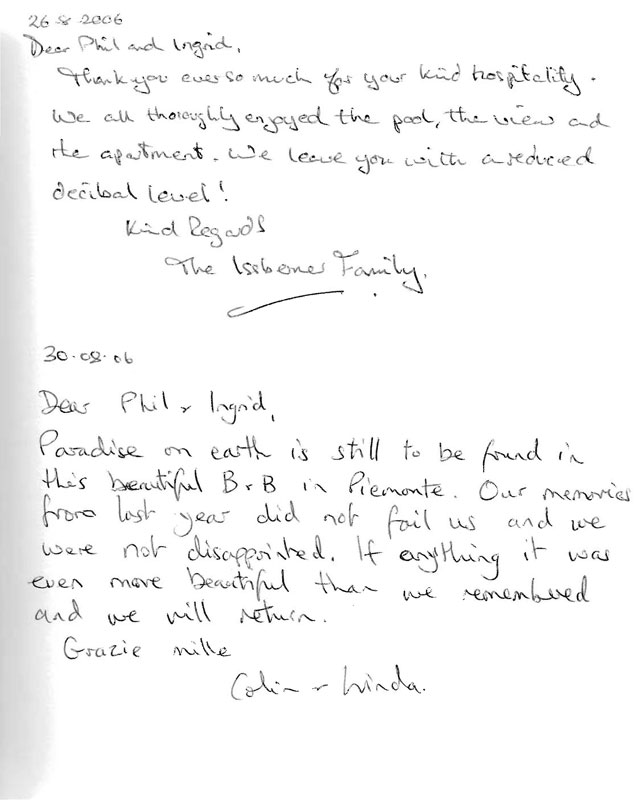 26-8-2006
Dear Phil and Ingrid,
Thank you ever so much for your kind hospitality.
We all thoroughly enjoyed the pool, the view and
the apartment. We leave you with a reduced
decibal level!
Kind Regards
The Family.
30.08.06
Dear Phil + Ingrid,
Paradise on earth is still to be found in
this beautiful B+B in Piemonte. Our memories
from last year did not fail us and we
were not disappointed. If anything it was
even more beautiful than we remembered
and we will return.
Grazie mille
Colin + Linda.